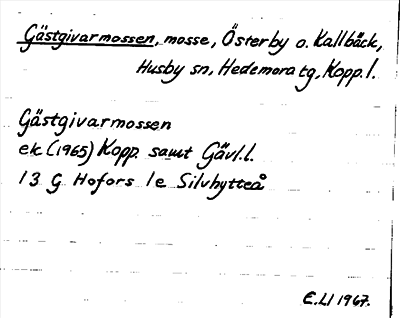 Gästgivarmossen, mosse, Österby o. Kallbäck,
Husby sn, Hedemora tg, Kopp. l.
Gästgivarmossen
ek (1965) Kopp. samt Gävl. l.
13 G Hofors 1e Silvhytteå
E. Ll 1967.